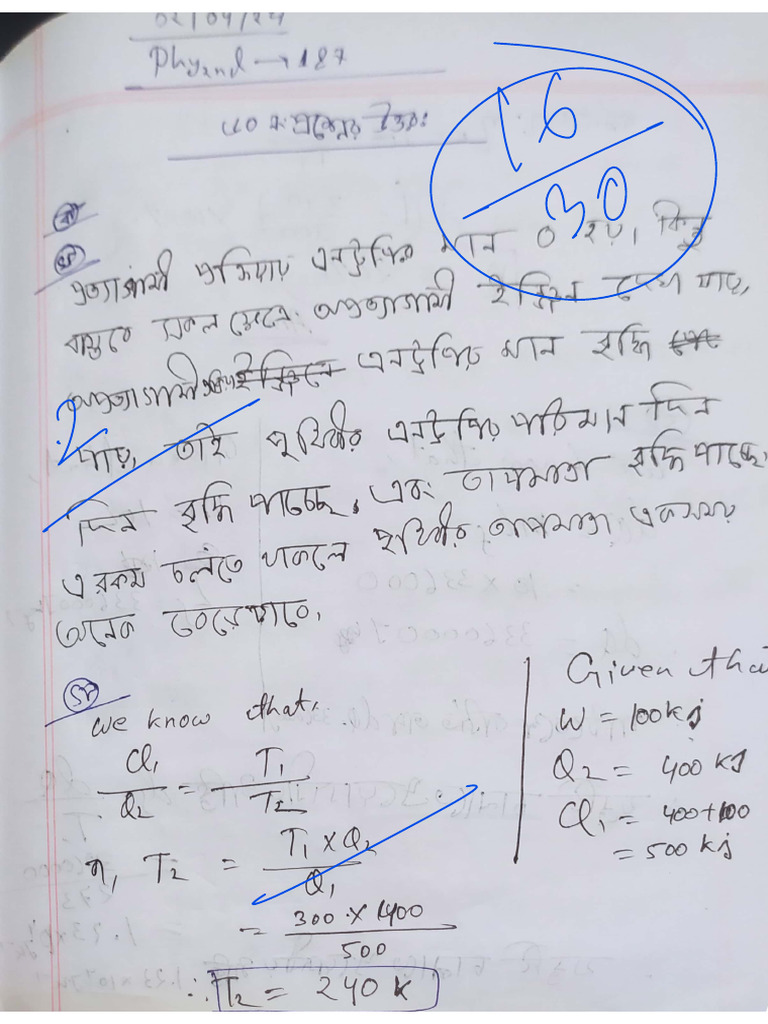 02/04/24
Phy 2nd → 187
নং প্রশ্নের উত্তরঃ
16
30
প্রত্যাগামী প্রক্রিয়ায় এনট্রপির মান 0 হয়। কিন্তু
বাস্তবে সকল ক্ষেত্রে অপ্রত্যাগামী ইঞ্জিন দেখা যায়,
অপ্রত্যাগামী এনট্রপির মান বৃদ্ধি
2
পায়, তাই পৃথিবীর এনট্রপির পরিমান দিন
দিন বৃদ্ধি পাচ্ছে, এবং তাপমাত্রা বৃদ্ধি পাচ্ছে,
এ রকম চলতে থাকলে পৃথিবীর তাপমাত্রা একসময়
অনেক বেড়ে যাবে,
We know that,
Q₁/Q₂ = T₁/T₂
η, T₂ = T₁ × Q₂ / Q₁
= 300 × 400 / 500
∴ T₂ = 240 K
Given that
W = 100 kj
Q₂ = 400 kj
Q₁ = 400+100
= 500 kj